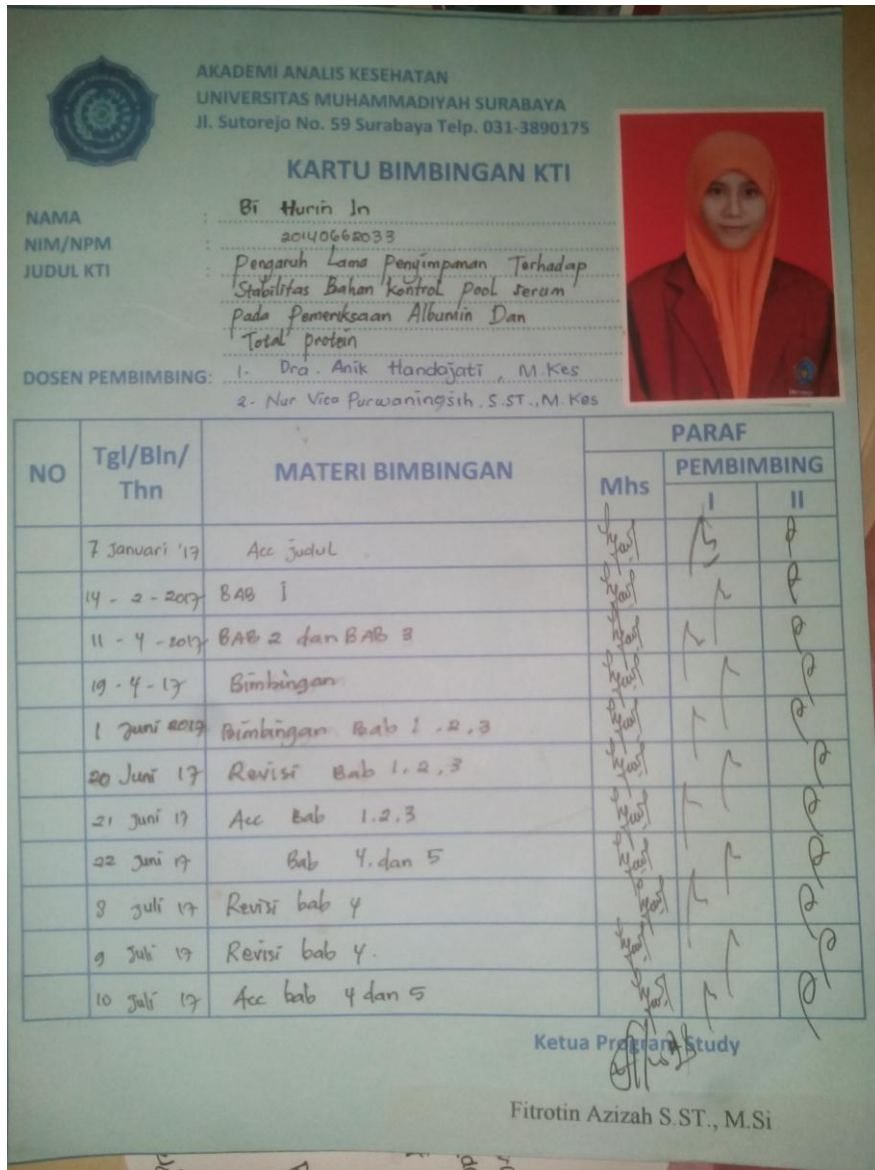 AKADEMI ANALIS KESEHATAN
UNIVERSITAS MUHAMMADIYAH SURABAYA
Jl. Sutorejo No. 59 Surabaya Telp. 031-3890175
KARTU BIMBINGAN KTI
NAMA : Bi Hurin In
NIM/NPM : 20140662033
JUDUL KTI : Pengaruh Lama Penyimpanan Terhadap
Stabilitas Bahan Kontrol pool serum
pada Pemeriksaan Albumin Dan
Total protein
DOSEN PEMBIMBING: 1. Dra. Anik Handajati, M.Kes
2. Nur Vita Purwaningsih, S.ST., M.Kes
NO Tgl/Bln/Thn MATERI BIMBINGAN PARAF
Mhs PEMBIMBING
I II
7 Januari '17 Acc judul
14 - 2 - 2017 BAB 1
11 - 4 - 2017 BAB 2 dan BAB 3
19 - 4 - 17 Bimbingan
1 Juni 2017 Bimbingan Bab 1.2.3
20 Juni 17 Revisi Bab 1.2.3
21 Juni 17 Acc Bab 1.2.3
22 Juni 17 Bab 4. dan 5
8 Juli 17 Revisi bab 4
9 Juli 17 Revisi bab 4.
10 Juli 17 Acc bab 4 dan 5
Ketua Program Study
Fitrotin Azizah S.ST., M.Si